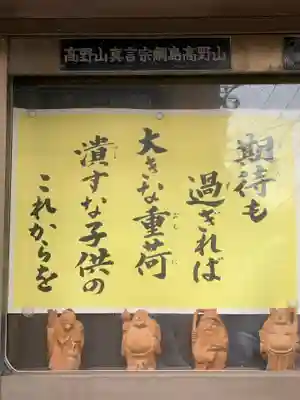 高野山真言宗綱島高野山
期待も
過ぎれば
大きな重荷
おもに
潰すな子供の
つぶ
これからを